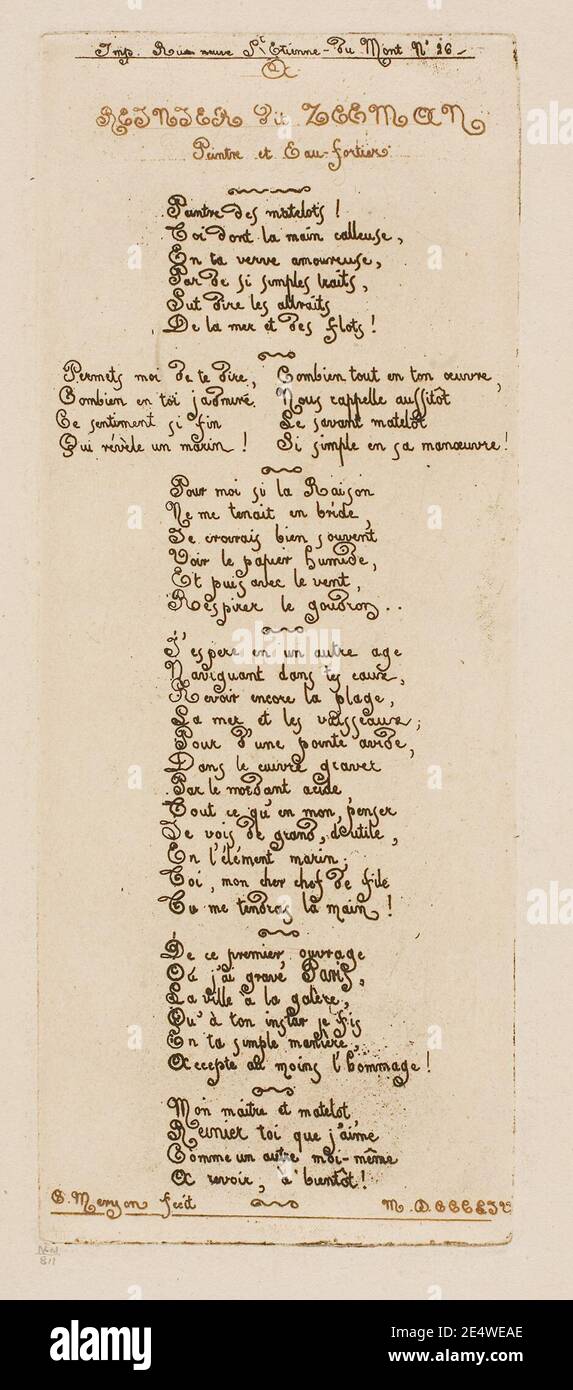 Imp. Rue neuve St Etienne-du Mont No 26
A
REINIER dit ZEEMAN
Peintre et Eau-fortier.
Peintre des matelots !
Toi dont la main calleuse,
En ta verve amoureuse,
Par de si simples traits,
Sut dire les attraits
De la mer et des flots !
Permets moi de te dire,
Combien en toi j'admire
Ce sentiment si fin
Qui révèle un marin !
Combien tout en ton œuvre,
Nous rappelle aussitôt
Le savant matelot
Si simple en sa manœuvre !
Pour moi si la Raison
Ne me tenait en bride,
Je croirais bien souvent
Voir le papier humide,
Et puis avec le vent,
Respirer le goudron..
J'espere en un autre age
Naviguant dans tes eaux,
Revoir encore la plage,
La mer et les vaisseaux;
Pour d'une pointe avide,
Dans le cuivre graver
Par le mordant acide
Tout ce qu'en mon penser
Je vois de grand, d'utile,
En l'élément marin;
Toi, mon cher chef de file
Tu me tendras la main !
De ce premier ouvrage
Où j'ai gravé Paris,
La ville à la galère,
Qu'à ton instar je fis
En ta simple manière,
Accepte au moins l'hommage !
Mon maitre et matelot
Reinier toi que j'aime
Comme un autre moi-même
A revoir, à bientôt !
C. Meryon fecit
M.D.CCCLIV
alamy
alamy
Image ID: 2E4WEAE
www.alamy.com